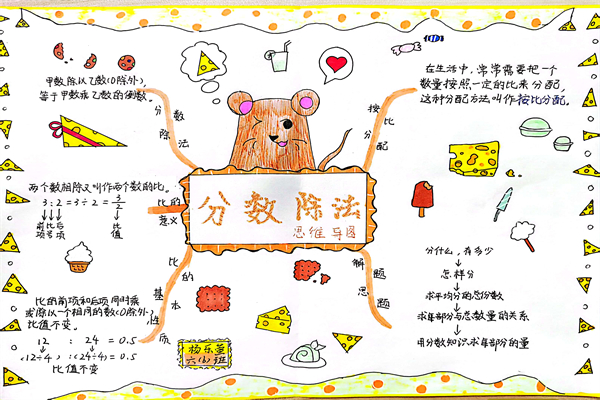 甲数除以乙数(0除外),
等于甲数乘乙数的倒数。
分数
除法
在生活中,常常需要把一个
数量按照一定的比来分配,
这种分配方法叫作按比分配。
按比
分配
两个数相除又叫作两个数的比。
3:2=3÷2=3/2
前项 比号 后项 比值
比的
意义
分数除法
思维导图
比的
基本
性质
比的前项和后项同时乘
或除以一个相同的数(0除外),
比值不变。
12 : 24 = 0.5
(12÷4):(24÷4)=0.5
比值不变
解题
思题
分什么,有多少
怎样分
求平均分的总份数
求每部分与总数量的关系
用分数知识求每部分的量
六(6)班